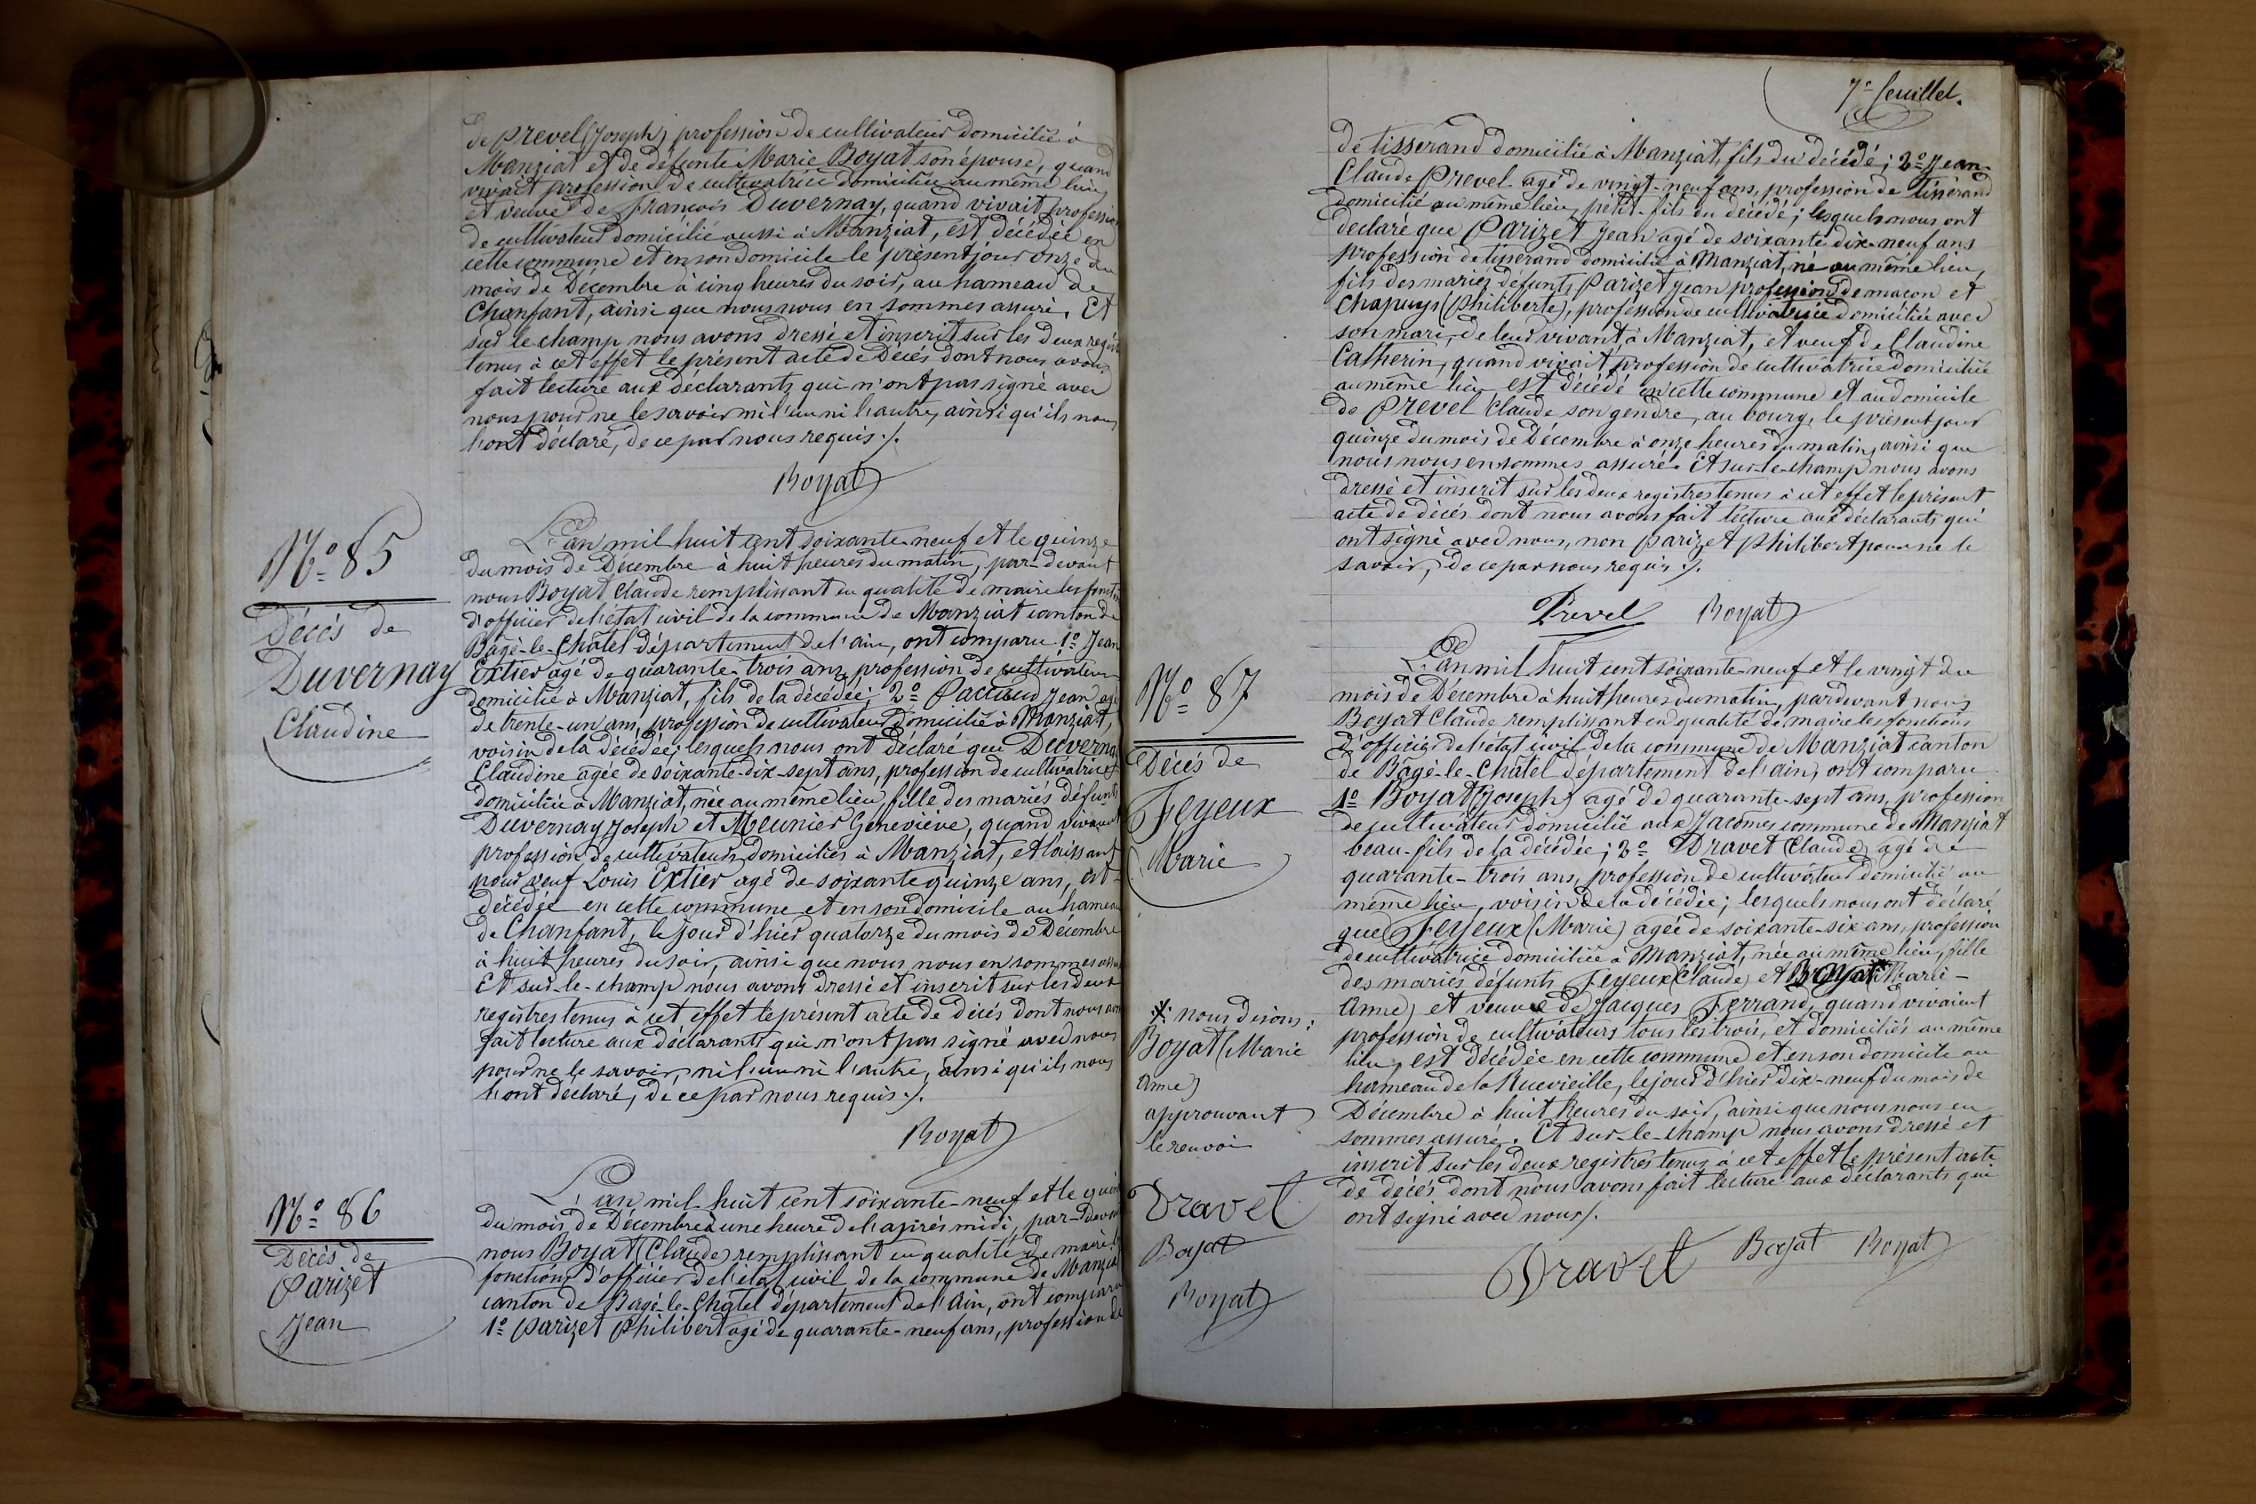 de Prevel (Joseph) profession de cultivateur domicilié à
Manziat et de défunte Marie Boyat son épouse, quand
vivait profession de cultivatrice domiciliée au même lieu,
et veuve de françois Duvernay, quand vivait profession
de cultivateur domicilié aussi à Manziat, est décédée en
cette commune et en son domicile le présent jour onze du
mois de Décembre à cinq heures du soir, au hameau de
Chanfant, ainsi que nous nous en sommes assuré. Et
sur le champ nous avons dressé et inscrit sur les deux regis
tenus à cet effet le présent acte de Décès dont nous avons
fait lecture aux déclarants qui n'ont pas signé avec
nous pour ne le savoir ni l'un ni l'autre, ainsi qu'ils nous
l'ont déclaré, de ce par nous requis ./.
Boyat
N° 85
Décés de
Duvernay
Claudine
L'an mil huit cent soixante-neuf et le quinze
du mois de Décembre à huit heures du matin, par-devant
nous Boyat Claude remplissant en qualité de maire les fonct
d'officier de l'état civil de la commune de Manziat canton de
Bâgé-le-Châtel département de l'ain, ont comparu 1° Jean
Extier agé de quarante-trois ans, profession de cultivateur
domicilié à Manziat, fils de la décédée; 2° Paccaud Jean agé
de trente-un ans, profession de cultivateur domicilié à Manziat,
voisin de la décédée; lesquels nous ont déclaré que Duvernay
Claudine agée de soixante-dix-sept ans, profession de cultivatrice
domiciliée à Manziat, née au même lieu, fille des mariés défunts
Duvernay Joseph et Meunier Geneviéve, quand vivaient
profession de cultivateurs domiciliés à Manziat, et laissant
pour veuf Louis Extier agé de soixante quinze ans, est
décédée en cette commune et en son domicile au hameau
de Chanfant, le jour d'hier quatorze du mois de Décembre
à huit heures du soir, ainsi que nous nous en sommes assu
Et sur-le-champ nous avons dressé et inscrit sur les deux
registres tenus à cet effet le présent acte de Décés dont nous avons
fait lecture aux déclarants qui n'ont pas signé avec nous
pour ne le savoir, ni l'un ni l'autre, ainsi qu'ils nous
l'ont déclaré, de ce par nous requis ./.
Boyat
N° 86
Décès de
Parizet
Jean
L'an mil huit cent soixante-neuf et le quin
du mois de Décembre à une heure de l'après midi, par-devan
nous Boyat (Claude) remplissant en qualité de maire
fonctions d'officier de l'état civil de la commune de Manzia
canton de Bagé-le-Châtel département de l'Ain, ont comparu
1° Parizet Philibert agé de quarante-neuf ans, profession de
7e feuillet.
de tisserand domicilié à Manziat, fils du décédé; 2° Jean-
Claude Prevel agé de vingt-neuf ans, profession de Tisserand
domicilié au même lieu, petit-fils du décédé; lesquels nous ont
declaré que Parizet Jean agé de soixante dix-neuf ans
profession de tisserand domicilié à Manziat, né au même lieu,
fils des mariés défunts Parizet Jean profession de maçon et
Chapuys (Philiberte), profession de cultivatrice domiciliée avec
son mari, de leur vivant, à Manziat, et veuf de Claudine
Catherin, quand vivait profession de cultivatrice domiciliée
au même lieu est décédé en cette commune et au domicile
de Prevel Claude son gendre, au bourg, le présent jour
quinze du mois de Décembre à onze heures du matin, ainsi que
nous nous en sommes assuré. Et sur-le-champ nous avons
dressé et inscrit sur les deux registres tenus à cet effet le présent
acte de décés dont nous avons fait lecture aux déclarants qui
ont signé avec nous, non Parizet Philibert pour ne le
savoir, de ce par nous requis ./.
Prevel Boyat
N° 87
Décés de
Feyeux
Marie
L'an mil huit cent soixante-neuf et le vingt du
mois de Décembre à huit heures du matin, pardevant nous
Boyat Claude remplissant en qualité de maire les fonctions
d'officier de l'état civil de la commune de Manziat canton
de Bâgé-le-Châtel département de l'ain, ont comparu
1° Boyat (Joseph) agé de quarante-sept ans, profession
de cultivateur domicilié aux Jacômes commune de Manziat
beau-fils de la décédée; 2° Dravet (Claude) agé de
quarante-trois ans, profession de cultivateur domicilié au
même lieu, voisin de la décédée; lesquels nous ont déclaré
que Feyeux (Marie) agée de soixante-six ans, profession
de cultivatrice domiciliée à Manziat, née au même lieu, fille
des mariés défunts Feyeux (Claude) et Boyat * (Marie-
Anne) et veuve de Jacques Ferrand, quand vivaient
profession de cultivateurs tous les trois, et domiciliés au même
lieu, est décédée en cette commune et en son domicile au
hameau de la Ruevieille, le jour d'hier dix-neuf du mois de
Décembre à huit heures du soir, ainsi que nous nous en
sommes assuré. Et sur-le-champ nous avons dressé et
inscrit sur les deux registres tenus à cet effet le présent acte
de décés dont nous avons fait lecture aux déclarants qui
ont signé avec nous ./.
Dravet Boyat Boyat
* nous disons :
Boyat (Marie
Anne)
approuvant
le renvoi
Dravet
Boyat
Boyat